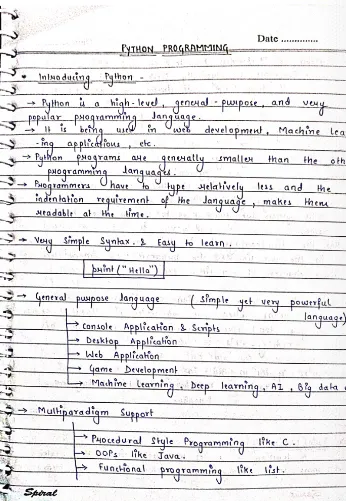 Date ..............
PYTHON PROGRAMMING
• Introducing Python -
→ Python is a high-level, general-purpose, and very
popular programming language.
→ It is being used in web development, Machine Lea
-ing applications, etc.
→ Python programs are generally smaller than the oth
programming languages.
→ Programmers have to type relatively less and the
indentation requirement of the language, makes them
readable at the time.
→ Very Simple Syntax & Easy to learn.
print("Hello")
→ General purpose language (Simple yet very powerful
language)
→ Console Application & Scripts
→ Desktop Application
→ Web Application
→ Game Development
→ Machine Learning, Deep learning, AI, Big data
→ Multiparadigm Support
→ Procedural Style Programming like C.
→ OOPs like Java.
→ Functional programming like list.
Spiral